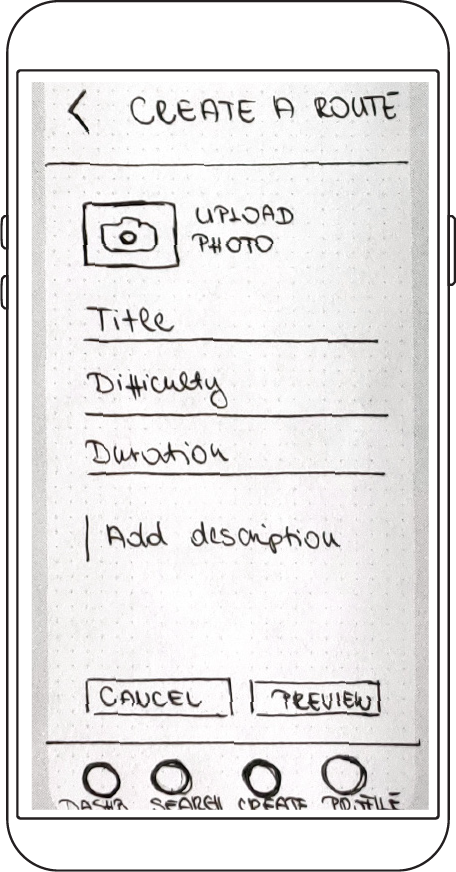 CREATE A ROUTE
UPLOAD
PHOTO
Title
Difficulty
Duration
Add description
CANCEL PREVIEW
SEARCH CREATE PROFILE